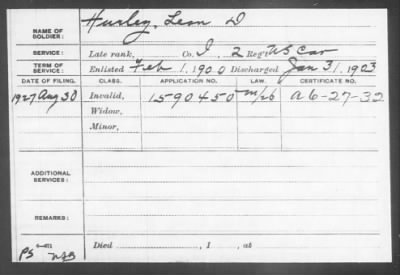 NAME OF SOLDIER: Hurley, Leon D
SERVICE: Late rank, Co. I, 2 Reg't US Cav
TERM OF SERVICE: Enlisted Feb 1, 1900 Discharged Jan 31, 1903
DATE OF FILING. CLASS. APPLICATION NO. LAW. CERTIFICATE NO.
1927 Aug 30 Invalid, 1590450 A 6-27-32
Widow,
Minor,
ADDITIONAL SERVICES:
REMARKS:
Died , 1 , at
PS